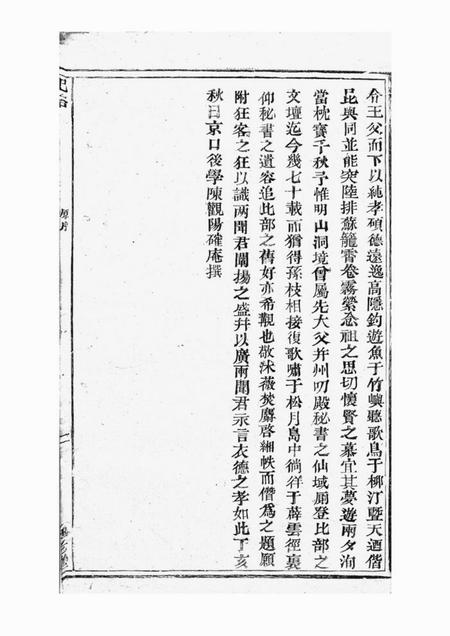 介王父而下以純孝碩德遠逸高隱釣遊魚于竹嶼聽歌鳥于柳汀暨天迺偕
昆與同並能突陸排蘇籠霄卷霧縈念祖之思切懷賢之慕宜其夢遊兩夕洵
當枕寶千秋予惟明山洞境曾屬先大父幷州叨殿秘書之仙域廁登比部之
文壇迄今幾七十載而猶得孫枝相接復歌嘯于松月島中徜徉于薜雲徑裏
仰秘書之遺容追比部之舊好亦希覯也敬沐薇焚麝啓緗帙而僭爲之題願
附狂客之狂以識兩聞君闡揚之盛幷以廣兩聞君示言衣德之孝如此丁亥
秋日京口後學陳觀陽確庵撰